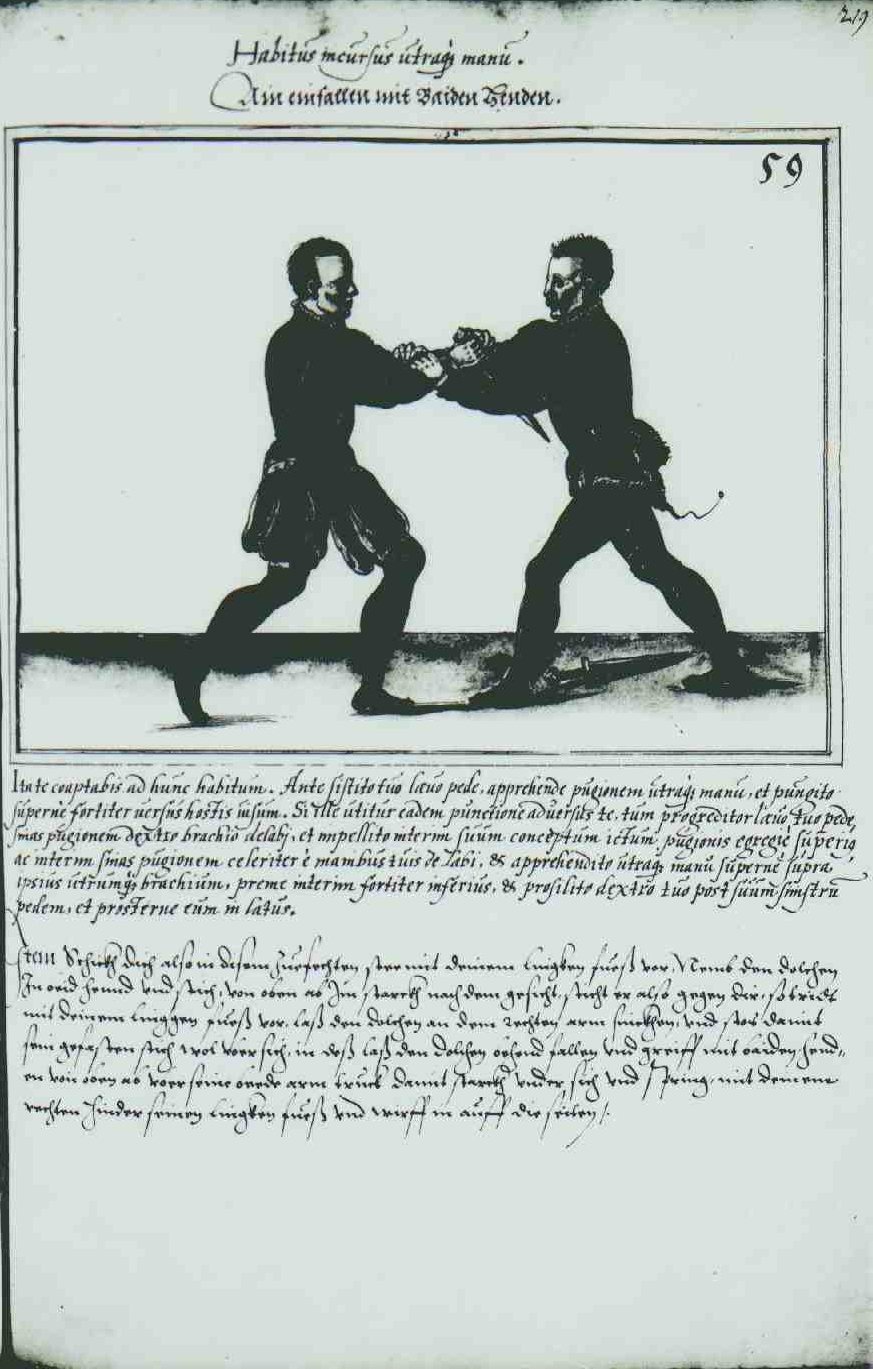 219
Habitus incursus utraq; manu.
Ain einfallen mit Baiden Henden.
59
Ita te coaptabis ad hunc habitum. Ante sistito tuo laevo pede, apprehende pugionem utraq; manu, et pungito
superne fortiter versus hostis visum. Si ille utitur eadem punctione adversus te, tum progreditor laevo tuo pede,
sinas pugionem dextro brachio delabi, et impellito interim suum conceptum ictum pugionis egregie superius
ac interim sinas pugionem celeriter è manibus tuis delabi, & apprehendito utraq; manu superne supra
ipsius utrumq; brachium, preme interim fortiter inferius, & prosilito dextro tuo post suum sinistrū
pedem, et prosterne eum in latus.
Item Schickh dich also in disem Zuefechten stee mit deinem linggken fuess vor, Nemb den dolchen
In baid hennd vnd stich von oben ab Im starckh nach dem gesicht, sticht er also gegen dir, so trit
mit deinem linggen fuess vor, lass den dolchen an dem rechten arm sinckhen, vnd stos damit
sein gefasten stich wol vber sich, in dess lass den dolchen behend fallen vnd greiff mit baiden hend=
en von oben ab vber seine beede arm truck damit starckh vnder sich vnd spring mit deinem
rechten hinder seinen linggken fuess vnd wirff in auff die seiten /.